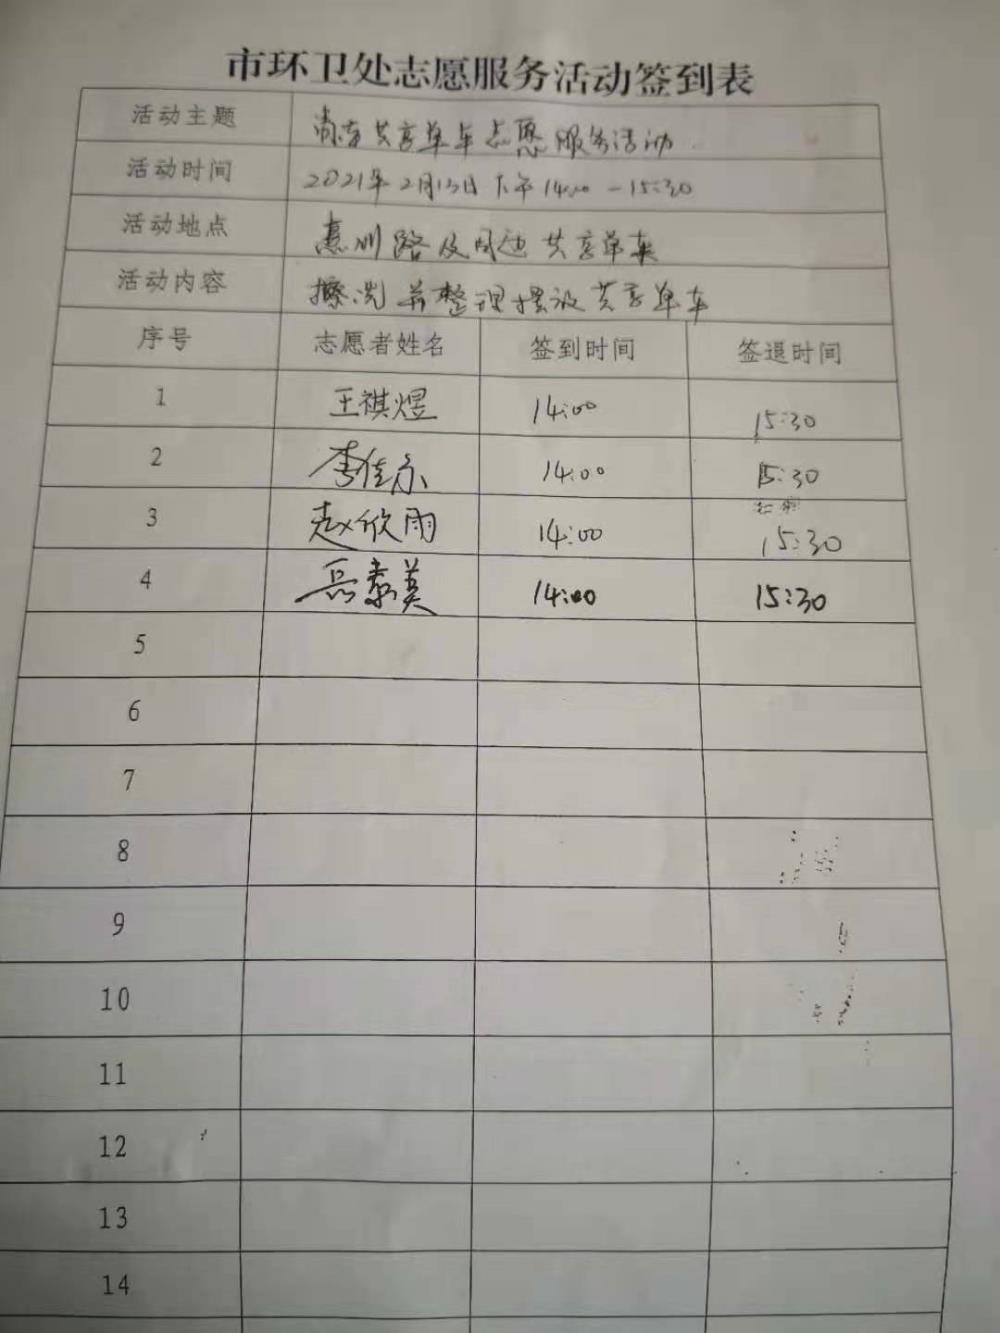 市环卫处志愿服务活动签到表
活动主题 共享单车志愿服务活动
活动时间 2021年2月13日下午14:00-15:30
活动地点 惠州路及周边共享单车
活动内容 擦洗并整理摆放共享单车
序号 志愿者姓名 签到时间 签退时间
1 王祺煜 14:00 15:30
2 李佳 14:00 15:30
3 赵欣雨 14:00 15:30
4 岳素英 14:00 15:30
5
6
7
8
9
10
11
12
13
14